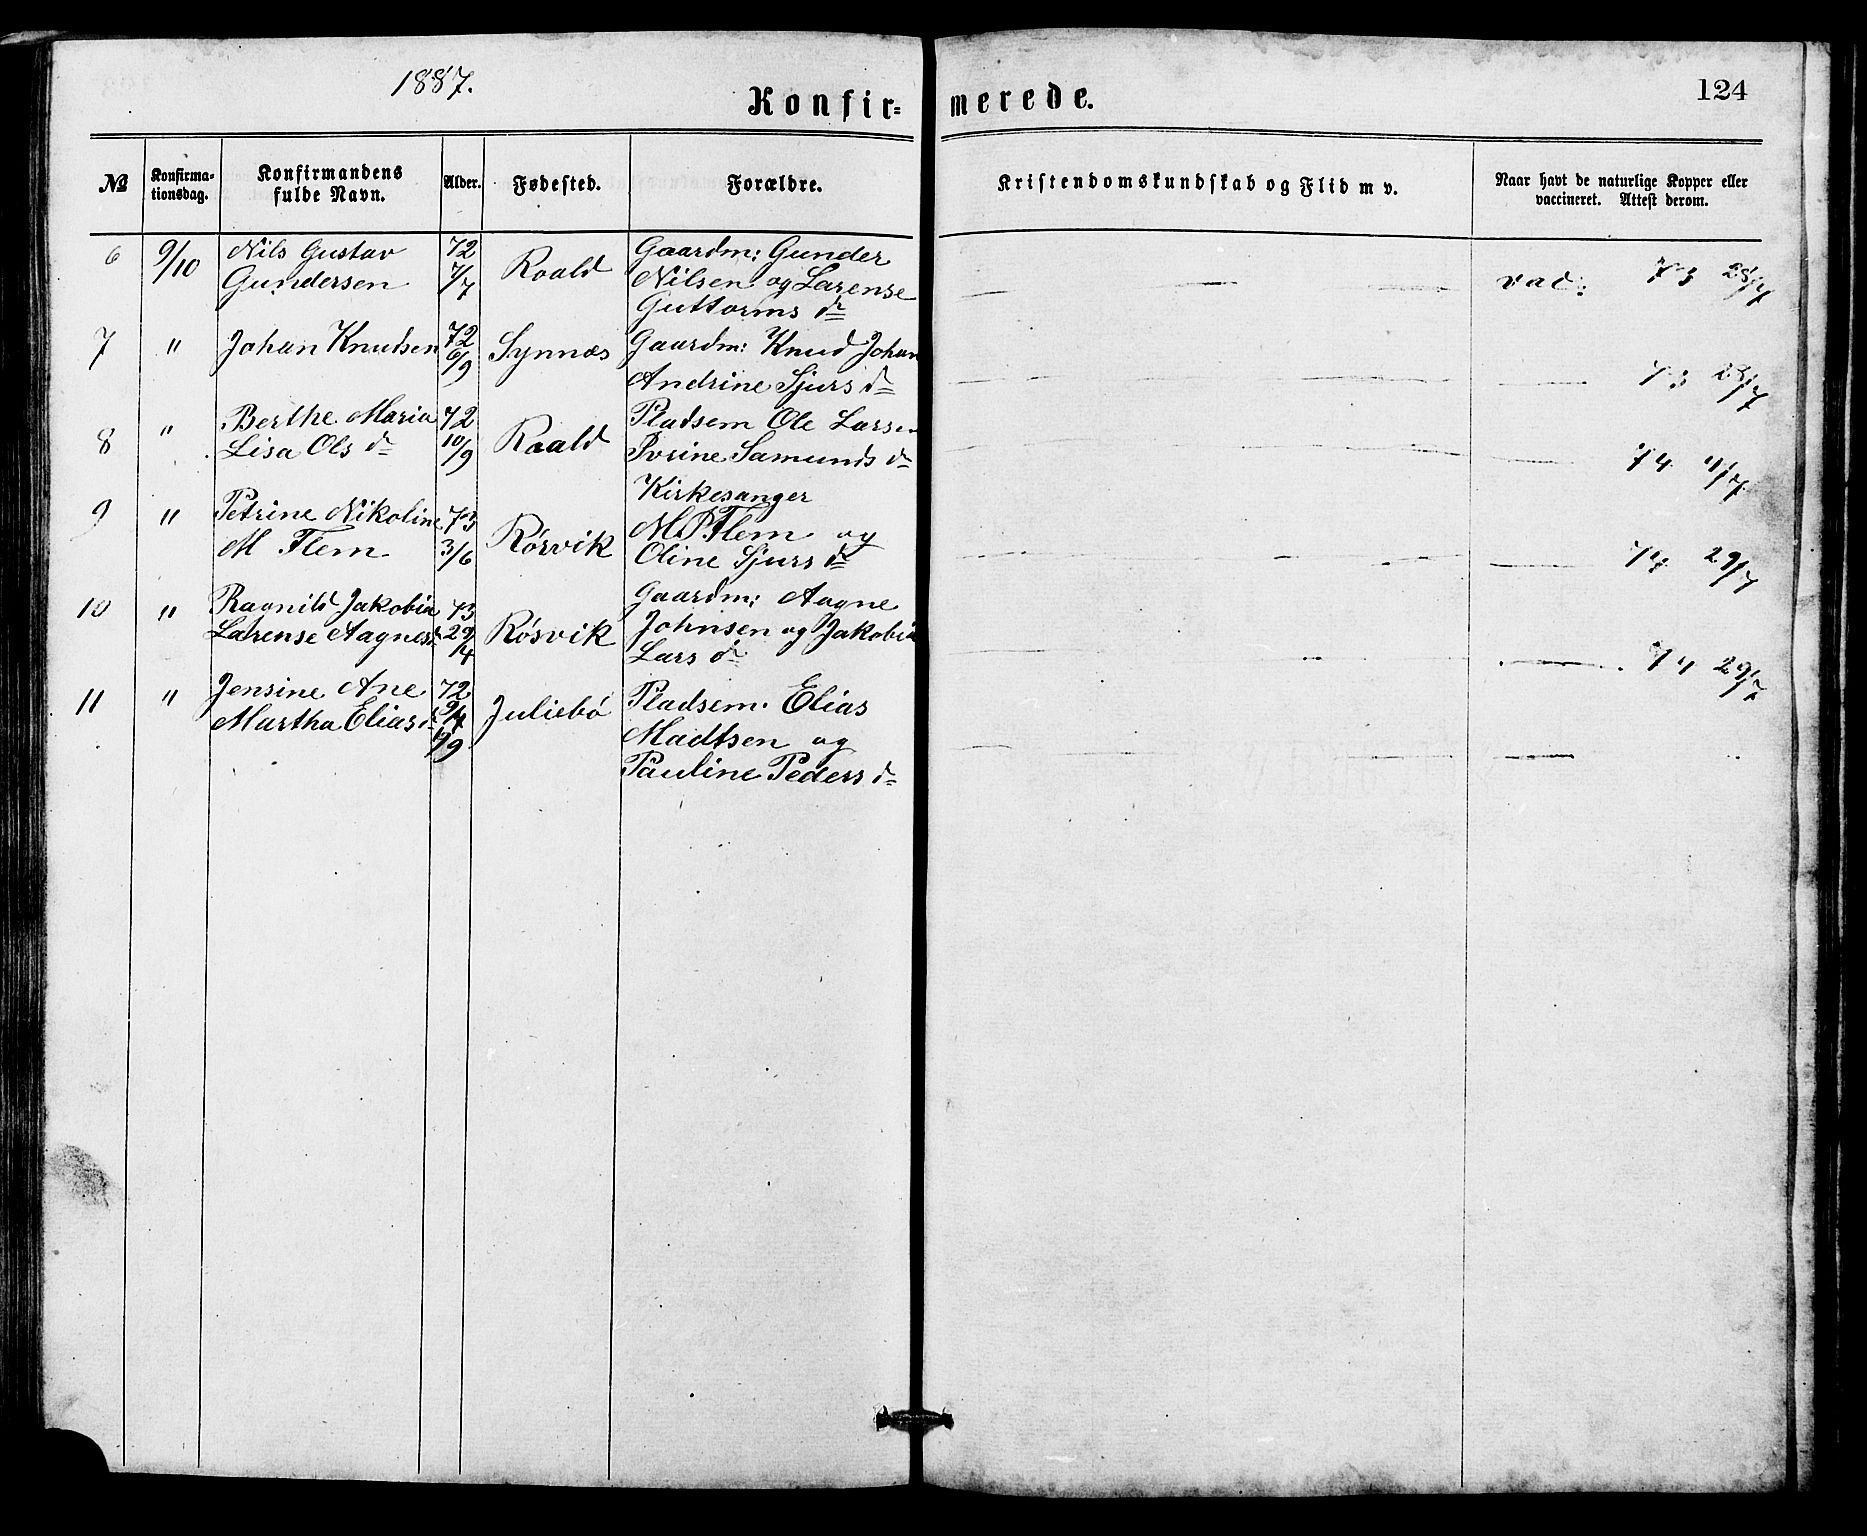 1887.
Konfir= merede.
124
No
Konfirma-
tionsdag.
Konfirmandens
fulde Navn.
Alder.
Fødested.
Forældre.
Kristendomskundskab og Flid m v.
Naar havt de naturlige Kopper eller
vaccineret. Attest derom.
6 9/10 Nils Gustav 72 Roald Gaardm: Gunder
Gundersen 7/7 Nilsen og Larense vac: 73 28/7
Guttorms dr
7 " Johan Knudsen 72 Synnæs Gaardm: Knud Johan
6/9 Andrine Sjurs dr 73 /7
8 " Berthe Maria 72 Roald Pladsem Ole Larsen
Lisa Ols dr 10/9 Samunds dr 74 4/7
9 " Petrine Nikoline 73 Rórvik Kirkesanger
M Flem 3/6 M.P. Flem og
Oline Sjurs dr 74 29/7
10 " Ragnild Jakobia 73 Rósvik Gaardm: Aagne
Larense Aagnes dr 29/4 Johnsen og Jakobia
Lars dr 74 29/7
11 " Jensine Ane 72 Juliebó Pladsem. Elias
Martha Elias dr /9 Madtsen og
Pauline Peders dr